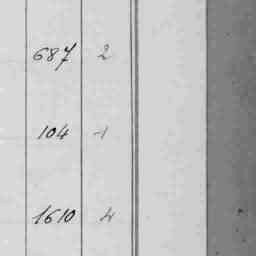 687 2
104 1
1610 4